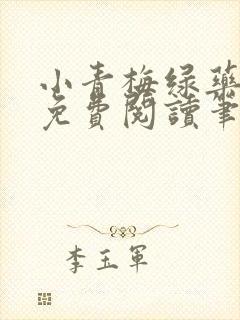 小青梅绿药
免費閱讀筆
李玉軍